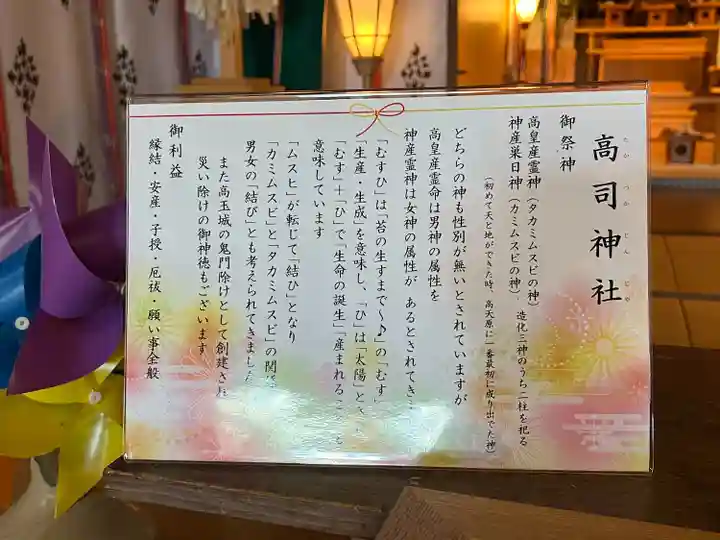 高司神社
たかつかじんじや
御祭神
高皇産霊神(タカミムスビの神)
神産巣日神(カミムスビの神)
造化三神のうち二柱を祀る
(初めて天と地ができた時、高天原に一番最初に成り出でた神)
どちらの神も性別が無いとされていますが
高皇産霊命は男神の属性を
神産霊神は女神の属性が あるとされてき
「むすひ」は「苔の生すまで〜♪」の「むす」
「生産・生成」を意味し、「ひ」は「太陽」とさ
「むす」+「ひ」で「生命の誕生」「産まれるこ と
意味しています
「ムスヒ」が転じて「結ひ」となり
「カミムスビ」と「タカミムスビ」の関
男女の「結び」とも考えられてきまし
また高玉城の鬼門除けとして創建され
災い除けの御神徳もございます
御利益
縁結・安産・子授・厄祓・願い事全般